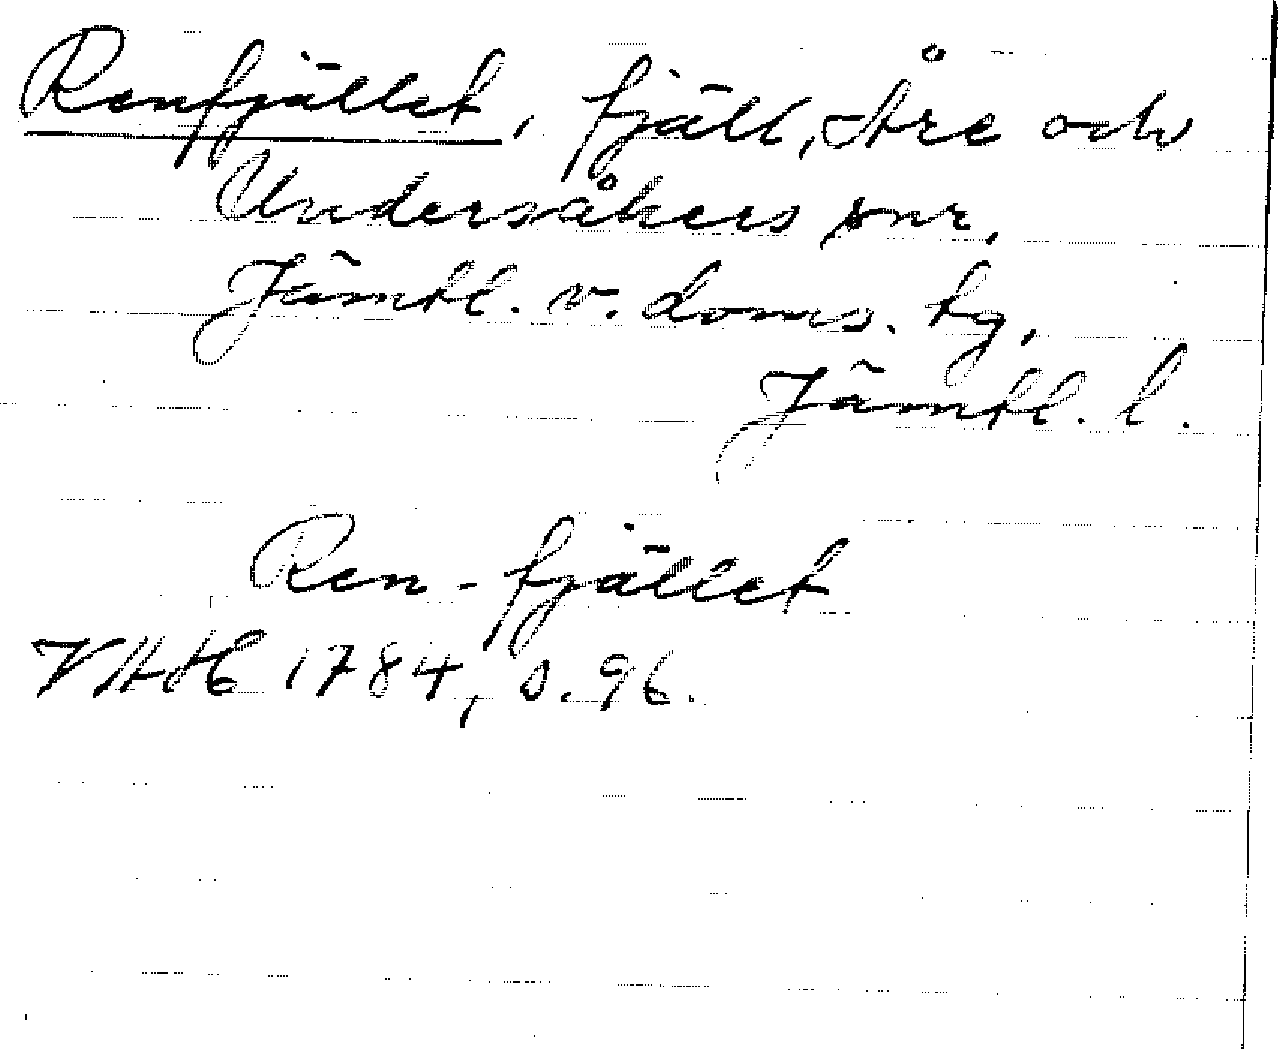 Renfjället, fjäll, Åre och
Undersåkers snr,
Jämtl. v. doms. tg,
Jämtl. l.
Ren-fjället
VHAH 1784, s. 96.